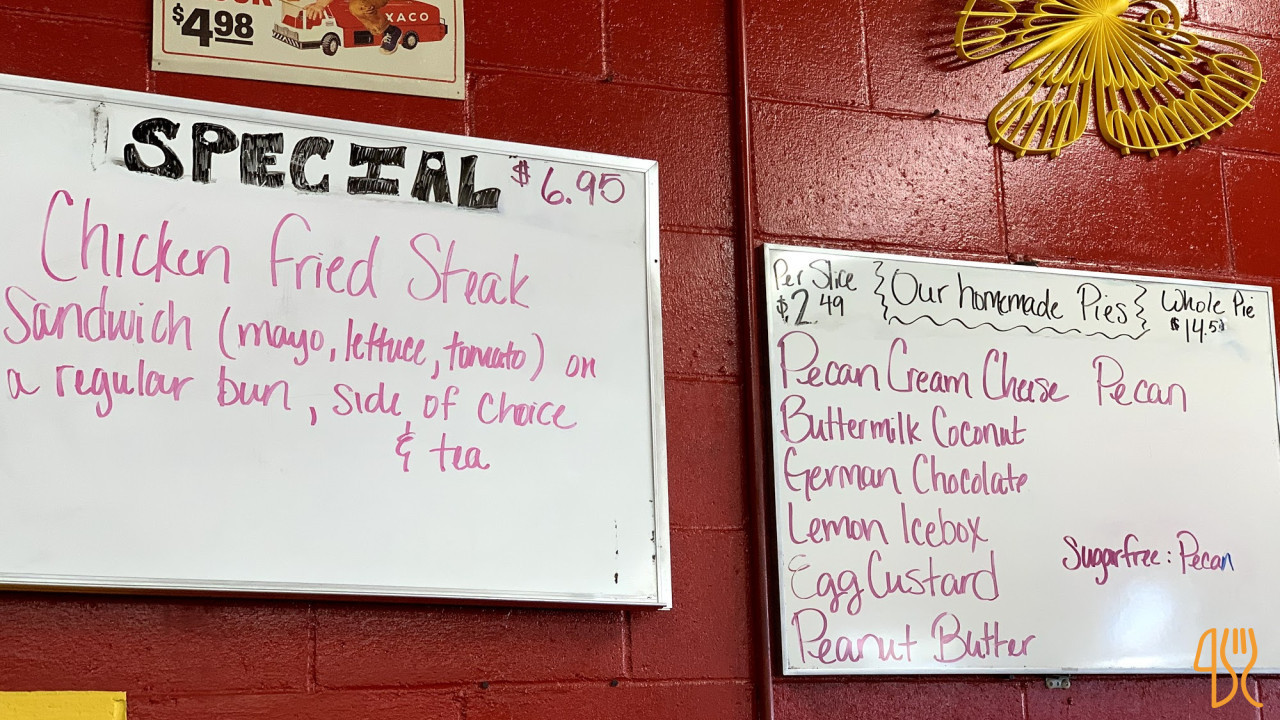 $4.98
XACO
SPECIAL $6.95
Chicken Fried Steak
Sandwich (mayo, lettuce, tomato) on
a regular bun, side of choice
& tea
Per Slice
$2.49
Our homemade Pies
Whole Pie
$14.50
Pecan Cream Cheese Pecan
Buttermilk Coconut
German Chocolate
Lemon Icebox
Egg Custard
Peanut Butter
Sugarfree: Pecan